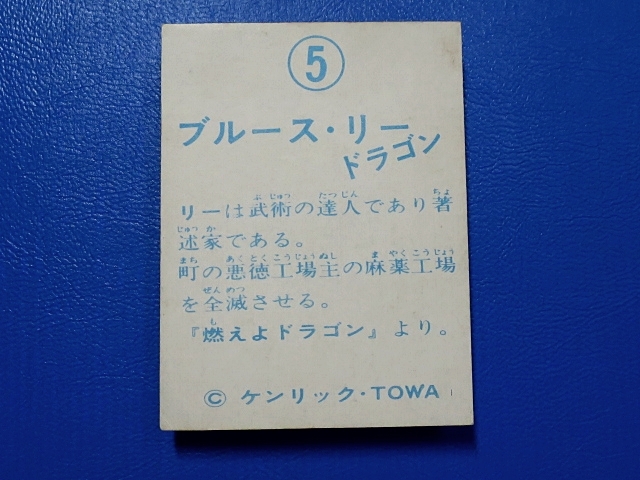 ⑤
ブルース・リー
ドラゴン
リーは武術の達人であり著
述家である。
町の悪徳工場主の麻薬工場
を全滅させる。
『燃えよドラゴン』より。
© ケンリック・TOWA